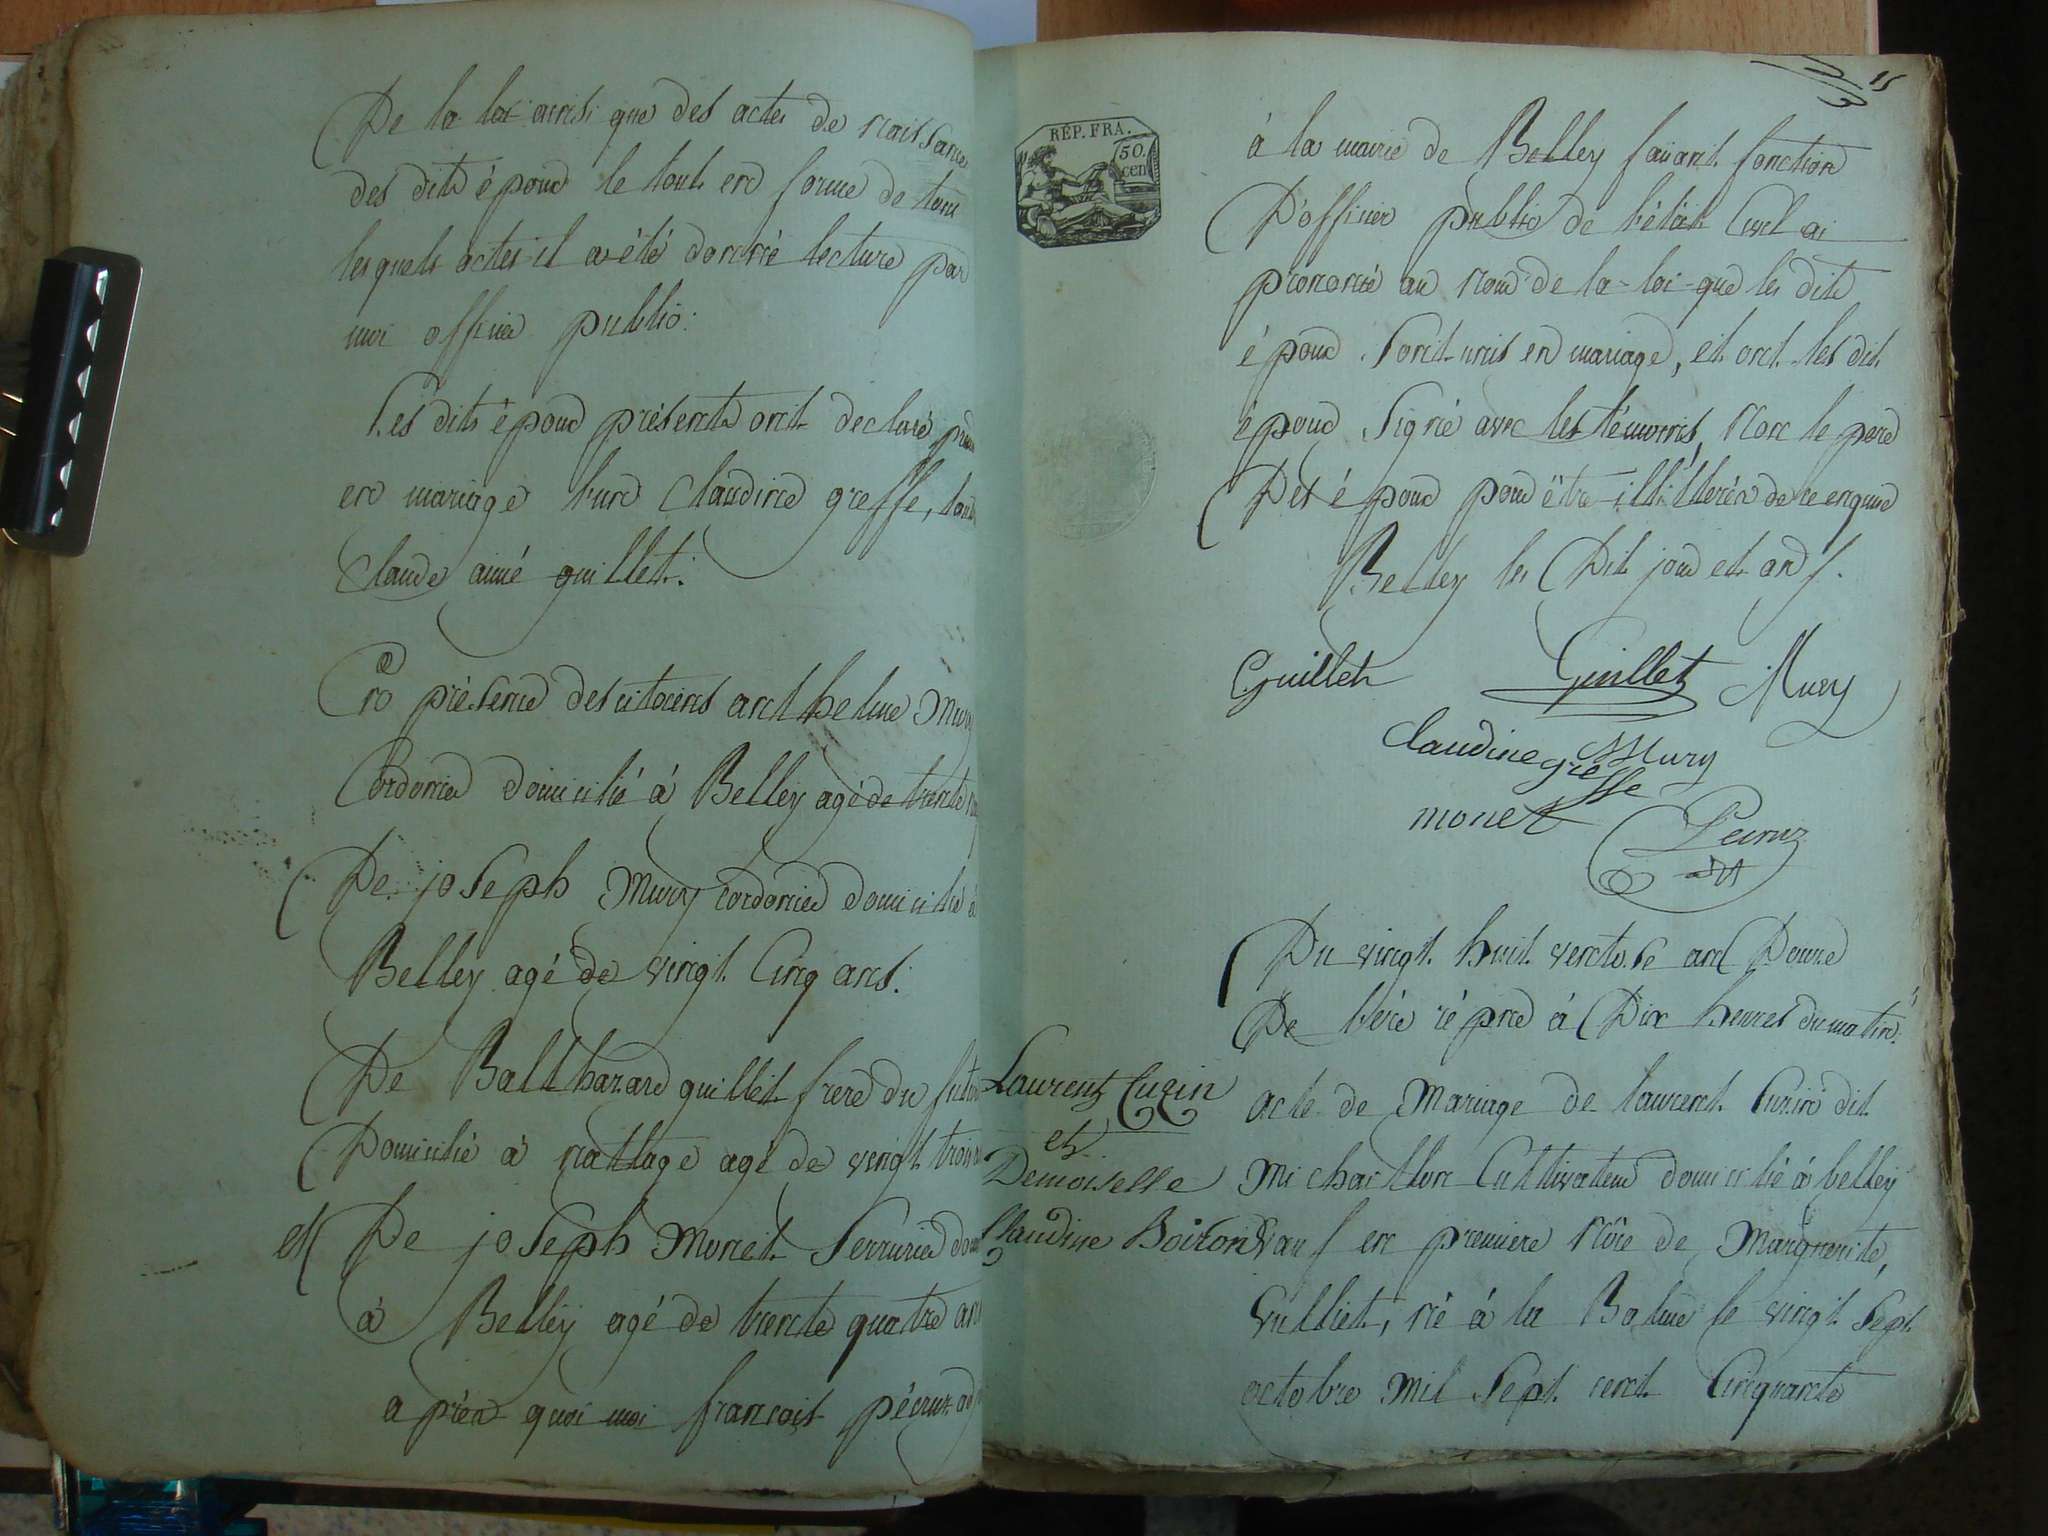 De la loi ainsi que des actes de naissance
des dits époux le tout en forme de tous
lesquels actes il a été donné lecture par
moi officier public:
Les dits époux présents ont déclaré prendre
en mariage l'une Claudine greffe, l'autre
Claude aimé guillet:
En présence des citoiens anthelme Mury
Cordonnier domicilié à Belley agé de trente
De joseph Mury cordonnier domicilié à
Belley agé de vingt Cinq ans:
De Balthazard guillet frere du futur
Domicilié à nattage agé de vingt trois
et De joseph Monet Serrurier
à Belley agé de trente quatre ans
après quoi moi françois pécruz
15
RÉP. FRA.
50.
cen
à la mairie de Belley faisant fonction
D'officier public de l'état Civil ai
prononcé au nom de la loi que les dits
époux Sont unis en mariage, et ont les dit
époux Signé avec les témoins, Non le pere
Des époux pour être illitérés de ce enquis
Belley les Dit jour et an /.
Guillet Guillet Mury
Claudine greffe Mury
monet Pecruz
adt
Du vingt huit ventose an Douze
De l'ére rép ne à Dix heures du matin:
Laurent Cuzin
et
Demoiselle
Claudine Boiron
acte de Mariage de laurent Cuzin dit
Michaillon Cultivateur domicilié à belley
Vauf en premiere Nôce de Marguerite,
Vulliet, né à la Balme le vingt Sept
octobre mil Sept cent Cinquante